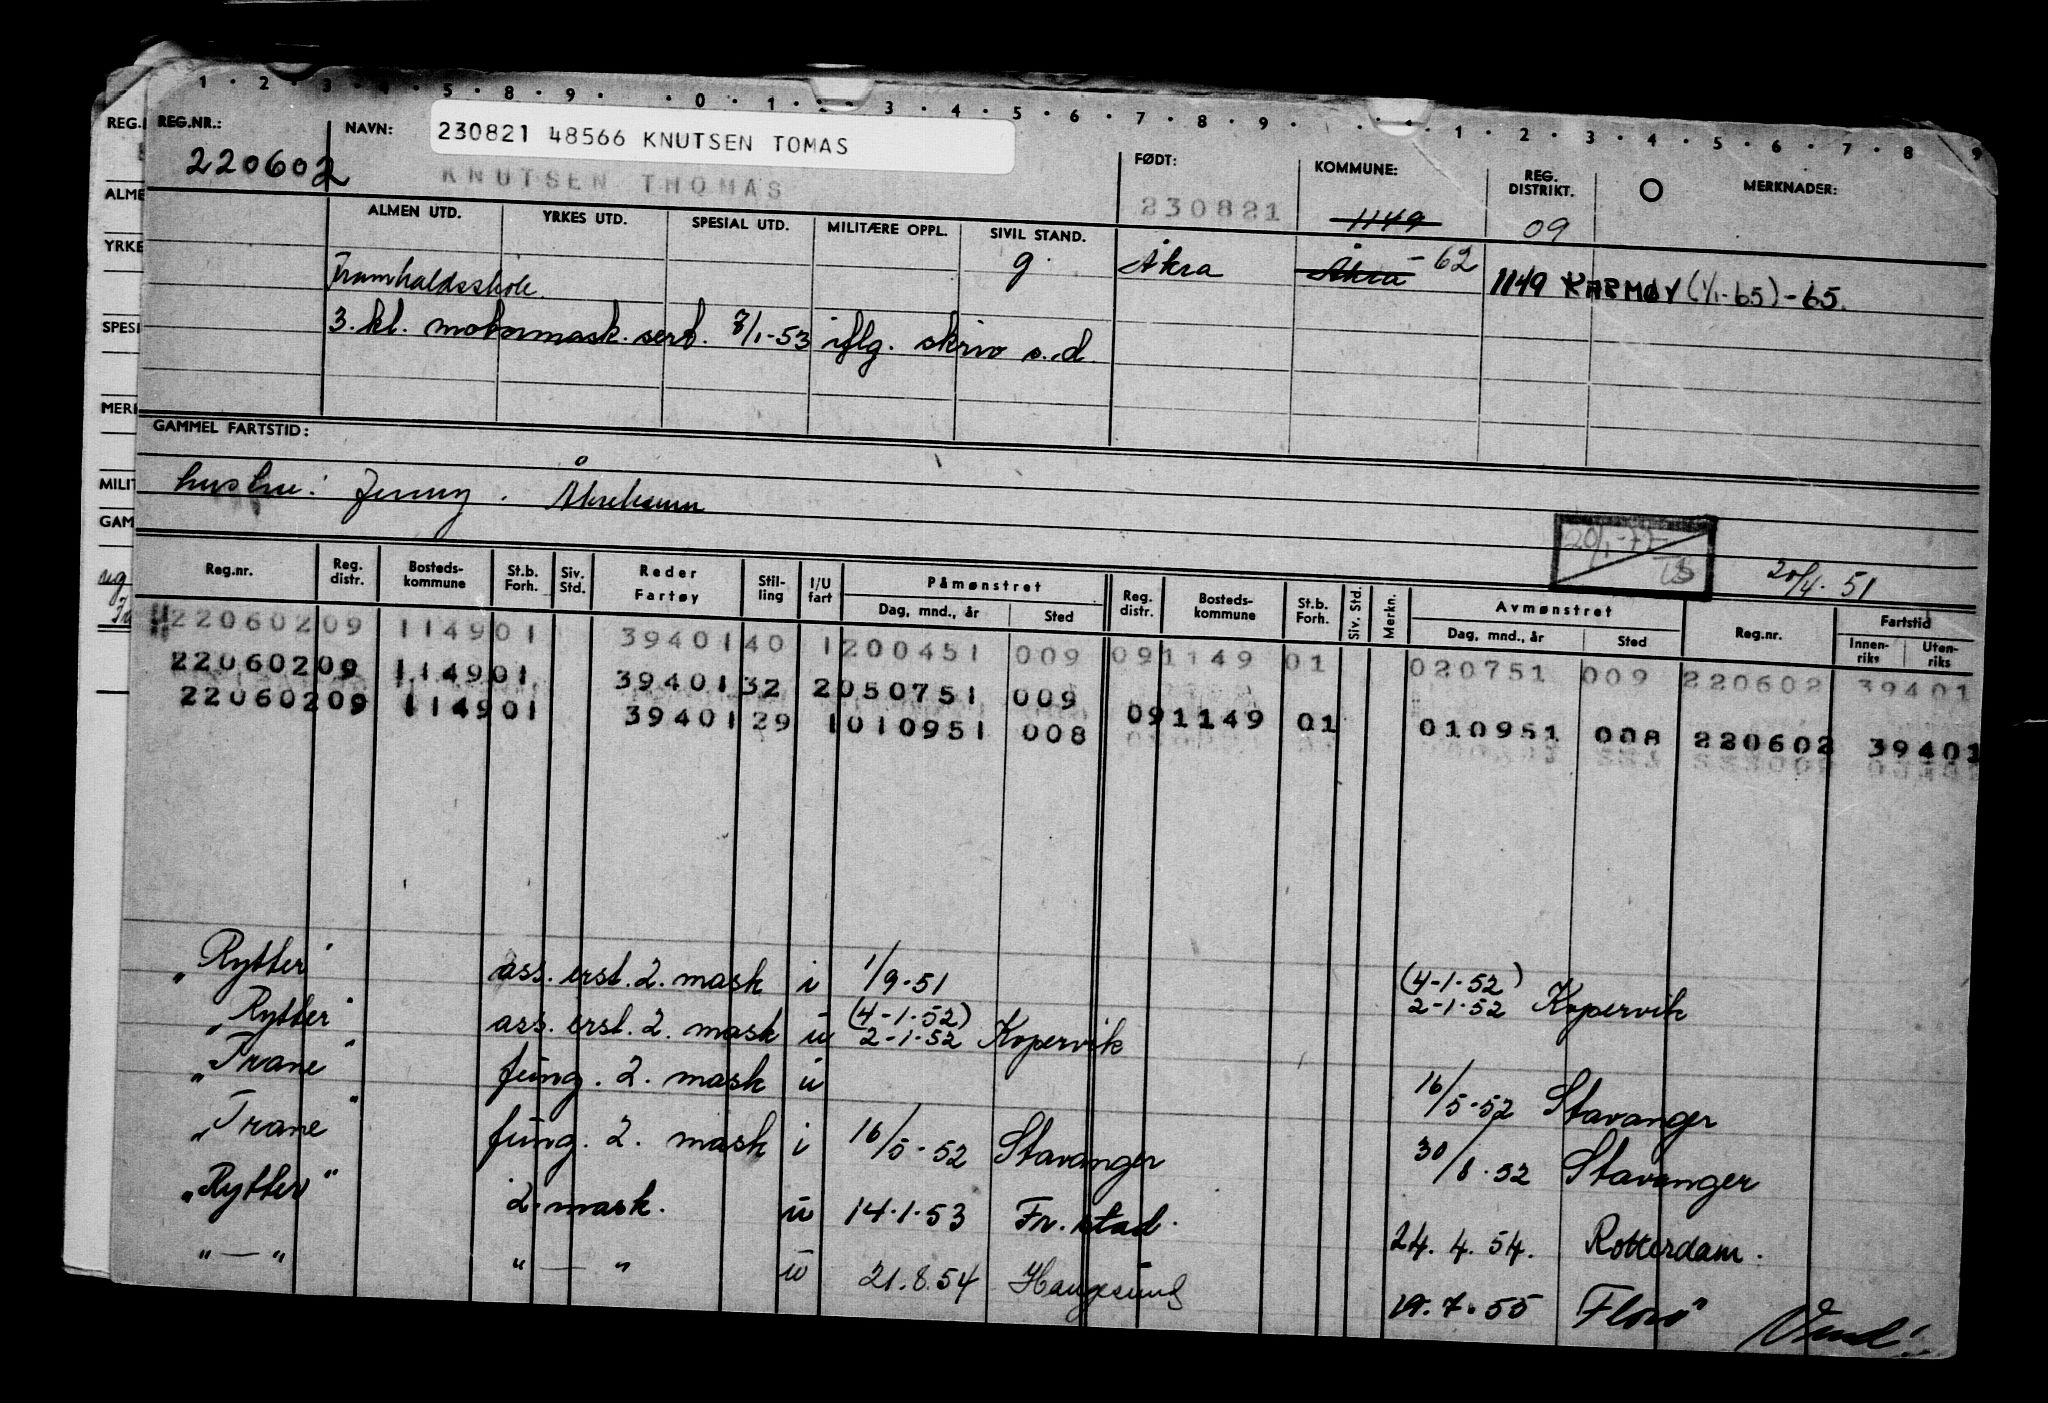 1 · 2 · 3 · 4 · 5 · 8 · 9 · · 0 · 1 · 2 · 3 · 4 · 5 · 6 · 7 · 8 · 9 · · 1 · 2 · 3 · 4 · 5 · 6 · 7 · 8 · 9
REG.NR.: NAVN: 230821 48566 KNUTSEN TOMAS FØDT: KOMMUNE: REG. DISTRIKT. MERKNADER:
220602 KNUTSEN THOMAS 230821 1149 09
ALMEN UTD. YRKES UTD. SPESIAL UTD. MILITÆRE OPPL. SIVIL STAND.
g. Åkra Åkra - 62 1149 KARMØY (1/1-65) - 65.
Framhaldsskole.
3. kl. motormask. sert. 7/1-53 iflg. skriv s.d.
GAMMEL FARTSTID:
hustru: Jenny. Åkrehamn
20/1-77
20/4-51
Reg.nr. Reg. distr. Bosteds-kommune St.b. Forh. Siv. Std. Reder Fartøy Stil-ling I/U fart Påmønstret Dag, mnd., år Sted Reg. distr. Bosteds-kommune St.b. Forh. Siv. Std. Merkn. Avmønstret Dag, mnd., år Sted Reg.nr. Fartstid Innen-riks Uten-riks
220602 09 1149 01 39401 40 1 200451 009 09 1149 01 020751 009 220602 39401
220602 09 1149 01 39401 32 2 050751 009
220602 09 1149 01 39401 29 1 010951 008 09 1149 01 010951 008 220602 39401
"Rytter" ass. erst. 2. mask i 1/9-51 (4-1-52) 2-1-52 Kopervik
"Rytter" ass. erst. 2. mask u (4-1-52) 2-1-52 Kopervik
"Trane" fung. 2. mask u 16/5-52 Stavanger
"Trane" fung. 2. mask i 16/5-52 Stavanger 30/8-52 Stavanger
"Rytter" 2. mask. u 14.1.53 Fr.stad. 24.4.54. Rotterdam.
" — " " — " u 21.8.54 Haugesund 19.7.55 Florø
Vend!
REG.
ALME
YRKE
SPESI
MERI
MILIT
GAM